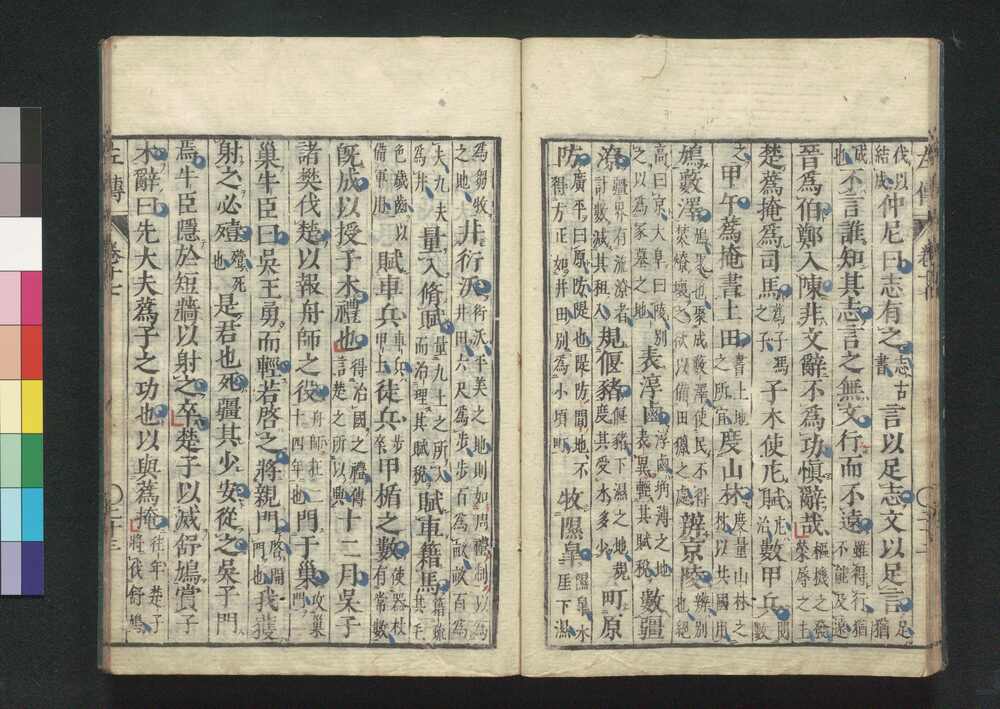 伐以結成仲尼曰志有之志古書言以足志文以足言足猶
成也不言誰知其志言之無文行而不遠雖得行猶不能及遠
晉爲伯鄭入陳非文辭不爲功愼辭哉樞機之發榮辱之主
楚蒍掩爲司馬蒍子馮之子子木使庀賦庀治數甲兵閱數
之甲午蒍掩書土田書土地之所宜度山林度量山林之材以共國用
鳩藪澤鳩聚也聚成藪澤使民不得焚燎壞之欲以備田獵之處辨京陵辨別也絕
高曰京大阜曰陵別之以爲冢墓之地表淳鹵淳鹵埆薄之地表異輕其賦稅數疆
潦疆界有流潦者計數減其租入規偃豬偃豬下濕之地規度其受水多少町原
防廣平曰原防隄也隄防間地不得方正如井田別爲小頃町牧隰臯隰臯水厓下濕
爲芻牧之地井衍沃衍沃平美之地則如周禮制以爲井田六尺爲步步百爲畝畝百爲
夫九夫爲井量入脩賦量九土之所入而治理其賦稅賦車籍馬籍疏其毛
色歲齒以備軍用賦車兵車兵甲士徒兵步卒甲楯之數使器杖有常數
旣成以授子木禮也得治國之禮傳言楚之所以興十二月吳子
諸樊伐楚以報舟師之役舟師在二十四年也門于巢攻巢門
巢牛臣曰吳王勇而輕若啓之將親門啓開門也我獲
射之必殪殪死也是君也死疆其少安從之吳子門
焉牛臣隱於短牆以射之卒楚子以滅舒鳩賞子
木辭曰先大夫蒍子之功也以與蒍掩往年楚子將伐舒鳩
左傳 卷十七 〇二十三